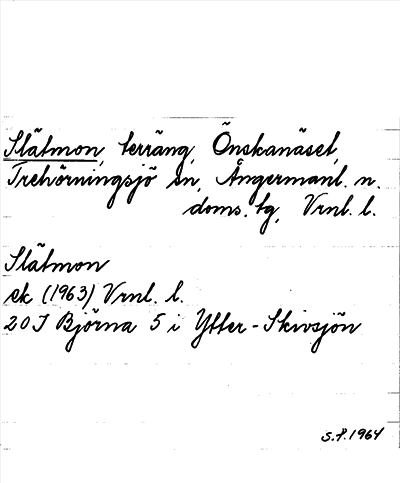 Slätmon, terräng, Önskanäset,
Trehörningsjö sn, Ångermanl. n.
doms. tg, Vrnl. l.
Slätmon
ek (1963) Vrnl. l.
20J Björna 5 i Ytter-Skivsjön
S.P. 1964